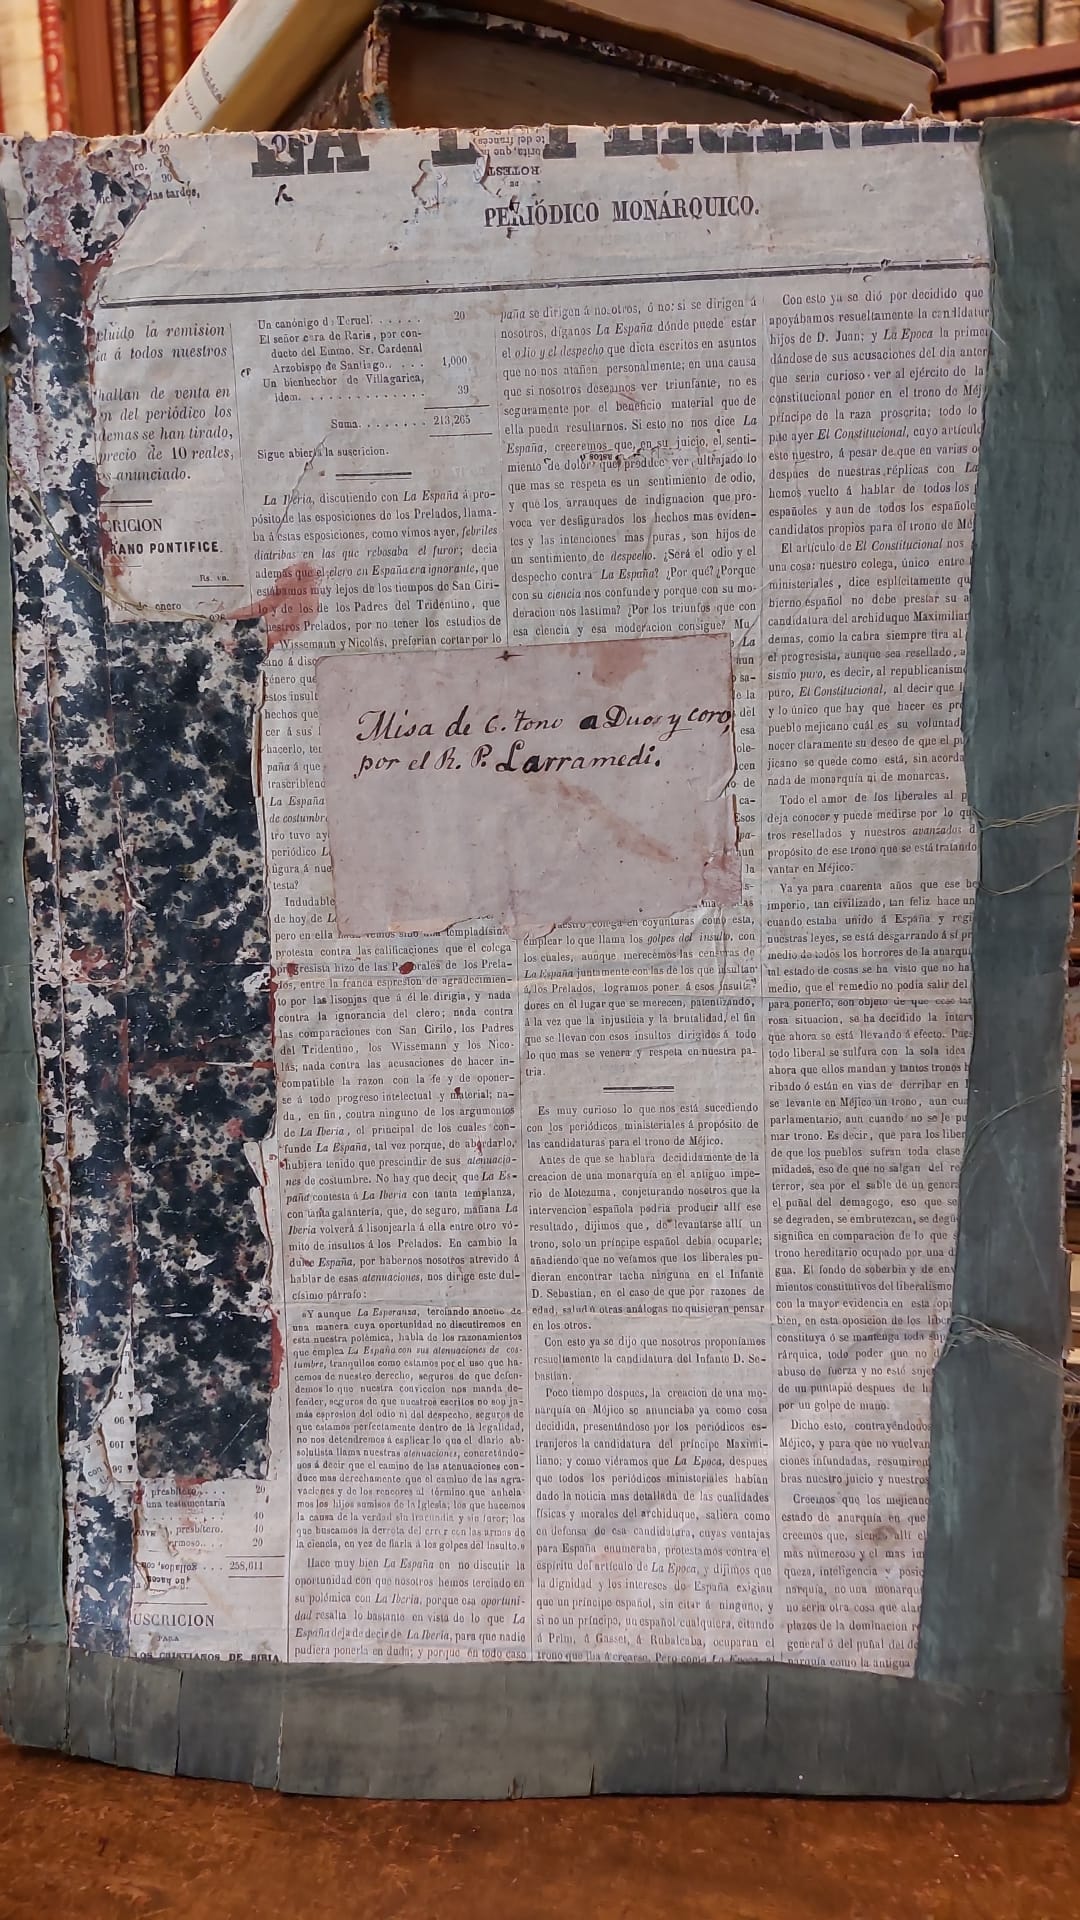 PERIÓDICO MONÁRQUICO.
las tardes,
cluido la remision
á todos nuestros
hallan de venta en
del periódico los
demas se han tirado,
precio de 10 reales,
anunciado.
CRICION
RANO PONTIFICE.
Rs. vn.
de enero
Un canónigo d. Teruel. . . . . . 20
El señor cura de Raris, por con-
ducto del Emmo. Sr. Cardenal
Arzobispo de Santiago. . . 1,000
Un bienhechor de Villagarica,
idem. . . . . . . . . . . . . . 39
Suma. . . . . . . . 213,265
Sigue abierta la suscricion.
La Iberia, discutiendo con La España á pro-
pósito de las esposiciones de los Prelados, llama-
ba á éstas esposiciones, como vimos ayer, febriles
diatribas en las que rebosaba el furor; decia
además que el clero en España era ignorante, que
estábamos muy lejos de los tiempos de San Ciri-
lo y de los de los Padres del Tridentino, que
nuestros Prelados, por no tener los estudios de
Wissemann y Nicolás, preferian cortar por lo
sano á disc
género que
estos insult
hechos que
cer á sus
hacerlo, ten
paña á que
trascribiend
La España
de costumbre
tro tuvo ay
periódico L
figura á nue
testa?
Indudable
de hoy de L
pero en ella hemos sido una templadísima
protesta contra las calificaciones que el colega
progresista hizo de las Pastorales de los Prela-
dos, entre la franca espresion de agradecimien-
to por las lisonjas que á él le dirigia, y nada
contra la ignorancia del clero; nada contra
las comparaciones con San Cirilo, los Padres
del Tridentino, los Wissemann y los Nico-
lás; nada contra las acusaciones de hacer in-
compatible la razon con la fe y de oponer-
se á todo progreso intelectual y material; na-
da, en fin, contra ninguno de los argumentos
de La Iberia, el principal de los cuales con-
funde La España, tal vez porque, de abordarlo,
hubiera tenido que prescindir de sus atenuacio-
nes de costumbre. No hay que decir que La Es-
paña contesta á La Iberia con tanta templanza,
con tanta galantería, que, de seguro, mañana La
Iberia volverá á lisonjearla á ella entre otro vó-
mito de insultos á los Prelados. En cambio la
dulce España, por habernos nosotros atrevido á
hablar de esas atenuaciones, nos dirige este dul-
císimo párrafo:
«Y aunque La Esperanza, terciando anoche de
una manera cuya oportunidad no discutiremos en
esta nuestra polémica, habla de los razonamientos
que emplea La España con sus atenuaciones de cos-
tumbre, tranquilos como estamos por el uso que ha-
cemos de nuestro derecho, seguros de que defen-
demos lo que nuestra conviccion nos manda de-
fender, seguros de que nuestros escritos no son ja-
más espresion del odio ni del despecho, seguros de
que estamos perfectamente dentro de la legalidad,
no nos detendremos á esplicar lo que el diario ab-
solutista llama nuestras atenuaciones, concretándo-
nos á decir que el camino de las atenuaciones con-
duce mas derechamente que el camino de las agra-
vaciones y de los rencores al término que anhela-
mos los hijos sumisos de la Iglesia; los que hacemos
la causa de la verdad sin iracundia y sin furor; los
que buscamos la derrota del error con las armas de
la ciencia, en vez de fiarla á los golpes del insulto.»
Hace muy bien La España en no discutir la
oportunidad con que nosotros hemos terciado en
su polémica con La Iberia, porque esa oportuni-
dad resalta lo bastante en vista de lo que La
España deja de decir de La Iberia, para que nadie
pudiera ponerla en duda; y porque en todo caso
presbítero. . . . 20
una testamentaria
40
presbítero. 40
rmoso. . . 20
258,011
USCRICION
PARA
LOS CRISTIANOS DE SIRIA
Misa de 6.º tono a Duos y coro,
por el R. P. Larramedi.
paña se dirigen á nosotros, ó no: si se dirigen á
nosotros, díganos La España dónde puede estar
el odio y el despecho que dicta escritos en asuntos
que no nos atañen personalmente; en una causa
que si nosotros deseamos ver triunfante, no es
seguramente por el beneficio material que de
ella pueda resultarnos. Si esto no nos dice La
España, creeremos que, en su juicio, el senti-
miento de dolor que produce ver ultrajado lo
que mas se respeta es un sentimiento de odio,
y que los arranques de indignacion que pro-
voca ver desfigurados los hechos mas eviden-
tes y las intenciones mas puras, son hijos de
un sentimiento de despecho. ¿Será el odio y el
despecho contra La España? ¿Por qué? ¿Porque
con su ciencia nos confunde y porque con su mo-
deracion nos lastima? ¿Por los triunfos que con
esa ciencia y esa moderacion consigue? Mu
emplear lo que llama los golpes del insulto, con
los cuales, aunque merecemos las censuras de
La España juntamente con las de los que insultan
á los Prelados, logramos poner á esos insulta-
dores en el lugar que se merecen, patentizando,
á la vez que la injusticia y la brutalidad, el fin
que se llevan con esos insultos dirigidos á todo
lo que mas se venera y respeta en nuestra pa-
tria.
Es muy curioso lo que nos está sucediendo
con los periódicos ministeriales á propósito de
las candidaturas para el trono de Méjico.
Antes de que se hablara decididamente de la
creacion de una monarquía en el antiguo impe-
rio de Motezuma, conjeturando nosotros que la
intervencion española podria producir allí ese
resultado, dijimos que, de levantarse allí un
trono, solo un príncipe español debia ocuparle;
añadiendo que no veíamos que los liberales pu-
dieran encontrar tacha ninguna en el Infante
D. Sebastian, en el caso de que por razones de
edad, salud ú otras análogas no quisieran pensar
en los otros.
Con esto ya se dijo que nosotros proponiamos
resueltamente la candidatura del Infante D. Se-
bastian.
Poco tiempo despues, la creacion de una mo-
narquía en Méjico se anunciaba ya como cosa
decidida, presentándose por los periódicos es-
tranjeros la candidatura del príncipe Maximi-
liano; y como viéramos que La Epoca, despues
que todos los periódicos ministeriales habian
dado la noticia mas detallada de las cualidades
físicas y morales del archiduque, saliera como
en defensa de esa candidatura, cuyas ventajas
para España enumeraba, protestamos contra el
espíritu del artículo de La Epoca, y dijimos que
la dignidad y los intereses de España exigian
que un príncipe español, sin citar á ninguno, y
si no un príncipe, un español cualquiera, citando
á Prim, á Gasset, á Rubalcaba, ocuparan el
trono que iba á crearse. Pero como La Epoca
Con esto ya se dió por decidido que
apoyábamos resueltamente la candidatur
hijos de D. Juan; y La Epoca la prime
dándose de sus acusaciones del dia anter
que seria curioso ver al ejército de la
constitucional poner en el trono de Méj
príncipe de la raza proscrita; todo lo
pite ayer El Constitucional, cuyo artícul
esto nuestro, á pesar de que en varias o
despues de nuestras réplicas con La
hemos vuelto á hablar de todos los
españoles y aun de todos los español
candidatos propios para el trono de Mé
El artículo de El Constitucional nos
una cosa: nuestro colega, único entre
ministeriales, dice esplícitamente qu
bierno español no debe prestar su a
candidatura del archiduque Maximilian
demas, como la cabra siempre tira al
el progresista, aunque sea resellado, a
sismo puro, es decir, al republicanismo
puro, El Constitucional, al decir que l
y lo único que hay que hacer es pre
pueblo mejicano cuál es su voluntad,
nocer claramente su deseo de que el pu
jicano se quede como está, sin acorda
nada de monarquía ni de monarcas.
Todo el amor de los liberales al p
deja conocer y puede medirse por lo qu
tros resellados y nuestros avanzados d
propósito de ese trono que se está tratando
vantar en Méjico.
Va ya para cuarenta años que ese be
imperio, tan civilizado, tan feliz hace un
cuando estaba unido á España y regi
nuestras leyes, se está desgarrando á sí pr
medio de todos los horrores de la anarqu
tal estado de cosas se ha visto que no ha
medio, que el remedio no podia salir del
para ponerlo, con objeto de que cese tan
rosa situacion, se ha decidido la interv
que ahora se está llevando á efecto. Pues
todo liberal se sulfura con la sola idea
ahora que ellos mandan y tantos tronos h
ribado ó están en vias de derribar en I
se levante en Méjico un trono, aun cua
parlamentario, aun cuando no se le pu
mar trono. Es decir, que para los liber
de que los pueblos sufran toda clase
midades, eso de que no salgan del re
terror, sea por el sable de un genera
el puñal del demagogo, eso que se
se degraden, se embrutezcan, se degü
significa en comparacion de lo que s
trono hereditario ocupado por una d
gua. El fondo de soberbia y de env
mientos constitutivos del liberalismo
con la mayor evidencia en esta opi
bien, en esta oposicion de los liber
constituya ó se mantenga toda supe
rárquica, todo poder que no d
abuso de fuerza y no esté suje
de un puntapié despues de h
por un golpe de mano.
Dicho esto, contrayéndonos
Méjico, y para que no vuelvan
ciones infundadas, resumirem
bras nuestro juicio y nuestros
Creemos que los mejicano
estado de anarquía en que
creemos que, siendo allí el
mas numeroso y el mas im
queza, inteligencia y posic
narquía, no una monarqu
no seria otra cosa que alar
plazos de la dominacion r
general ó del puñal del de
narquía como la antigua